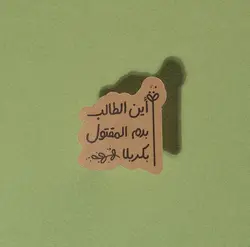 اين الطالب
بدم المقتول
بكربلا